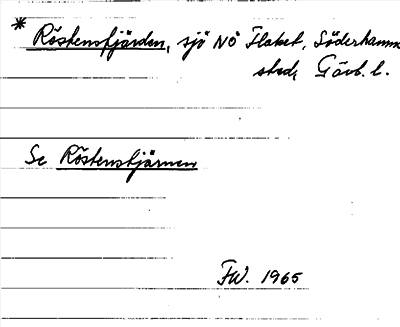 * Röstensfjärden, sjö NÖ Flaket, Söderhamns
stad, Gävl. l.
Se Röstenstjärnen
FW. 1965